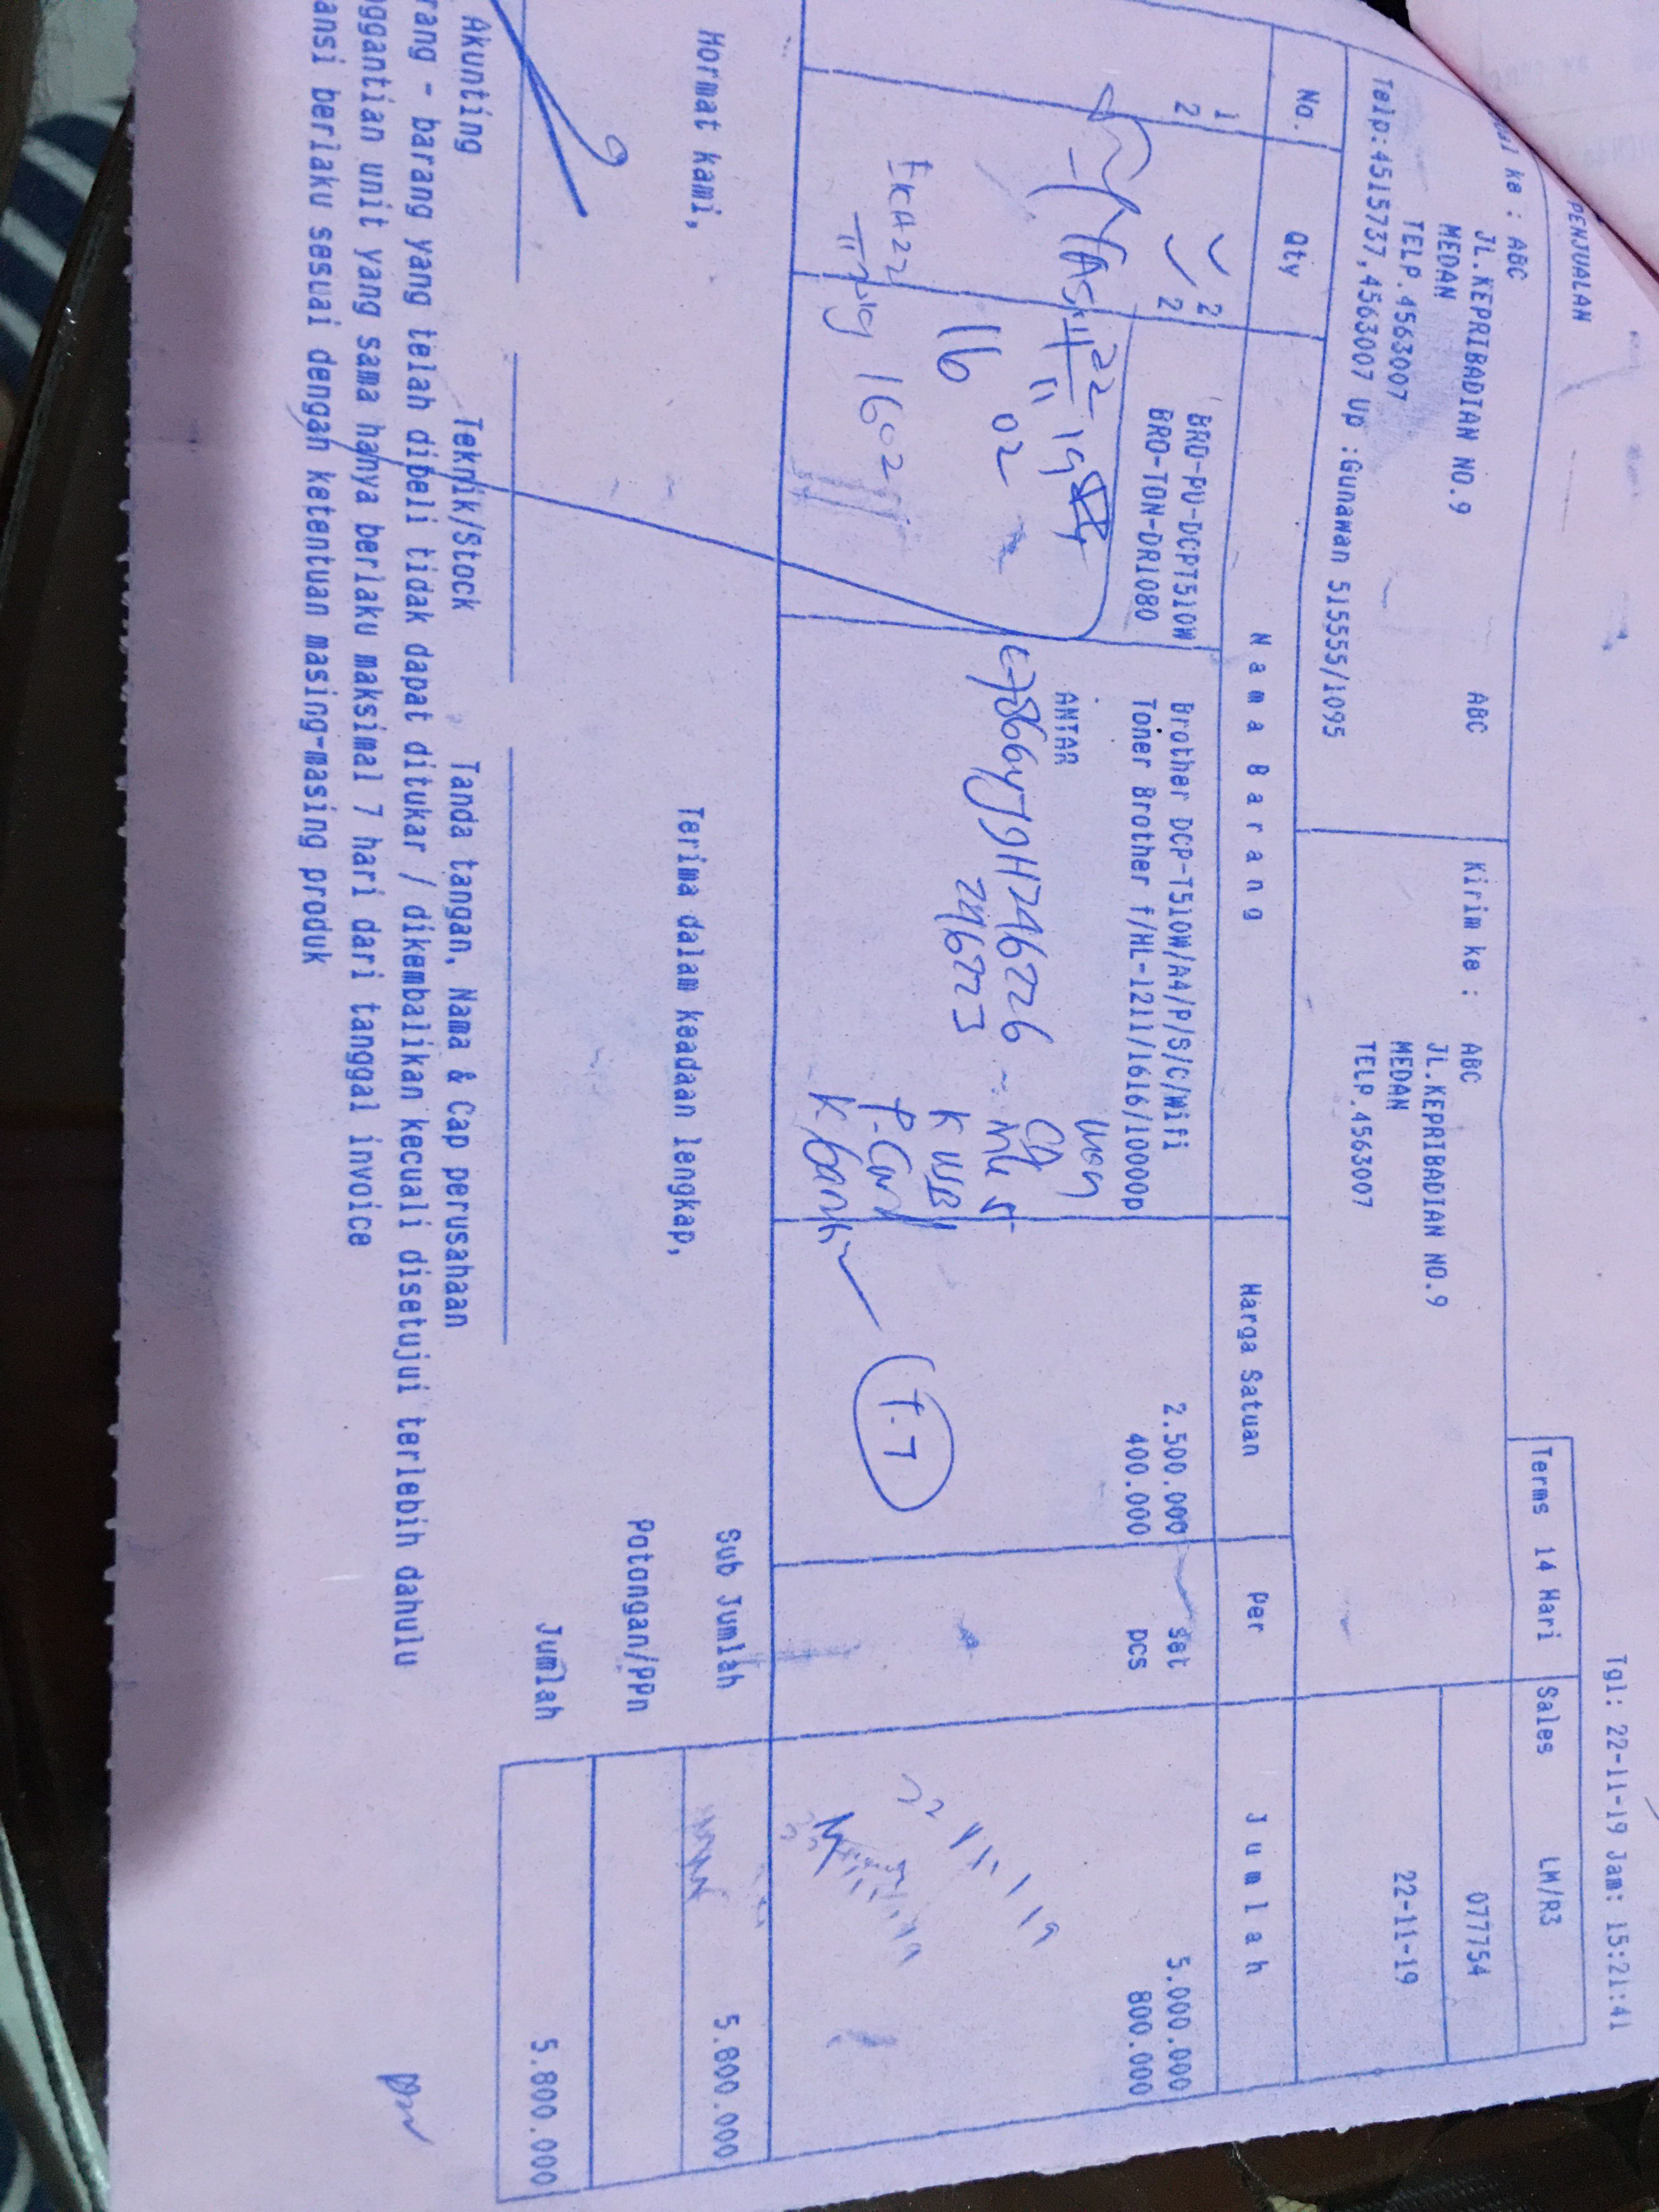 PENJUALAN
Tgl: 22-11-19 Jam: 15:21:41
Terms 14 Hari Sales LM/R3
ke : ABC ABC
JL.KEPRIBADIAN NO.9
MEDAN
TELP.4563007
Telp:4515737,4563007 Up :Gunawan 515555/1095
Kirim ke : ABC
JL.KEPRIBADIAN NO.9
MEDAN
TELP.4563007
077754
22-11-19
No. Qty Nama Barang Harga Satuan Per Jumlah
1 2 BRO-PU-DCPT510W Brother DCP-T510W/A4/P/S/C/Wifi 2.500.000 set 5.000.000
2 2 BRO-TON-DR1080 Toner Brother f/HL-1211/1616/10000p 400.000 pcs 800.000
ANTAR
246223
16 02
1602
K USB
T.T
22 11 19
Hormat kami,
Terima dalam keadaan lengkap,
Sub Jumlah 5.800.000
Potongan/PPn
Jumlah 5.800.000
Akunting Teknik/Stock Tanda tangan, Nama & Cap perusahaan
rang - barang yang telah dibeli tidak dapat ditukar / dikembalikan kecuali disetujui terlebih dahulu
nggantian unit yang sama hanya berlaku maksimal 7 hari dari tanggal invoice
ansi berlaku sesuai dengan ketentuan masing-masing produk